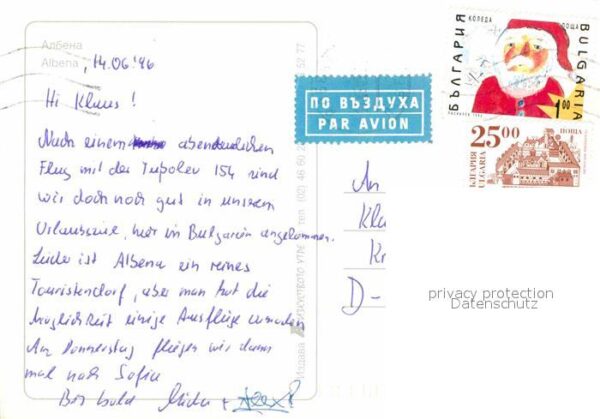 Албена
Albena
14.06'96
Hi Klaus!
Nach einem abenteuerlichen
Flug mit der Tupolev 154 sind
wir doch noch gut in unserem
Urlaubsziel, hier in Bulgarien angekommen.
Leider ist Albena ein reines
Touristendorf, aber man hat die
Möglichkeit einige Ausflüge zu machen
Am Donnerstag fliegen wir dann
mal nach Sofia
Bis bald
ПО ВЪЗДУХА
PAR AVION
An
Kl
K
D-
КОЛЕДА
ПОЩА
БЪЛГАРИЯ
BULGARIA
1.00
25.00
ПОЩА
БЪЛГАРИЯ
BULGARIA
privacy protection
Datenschutz